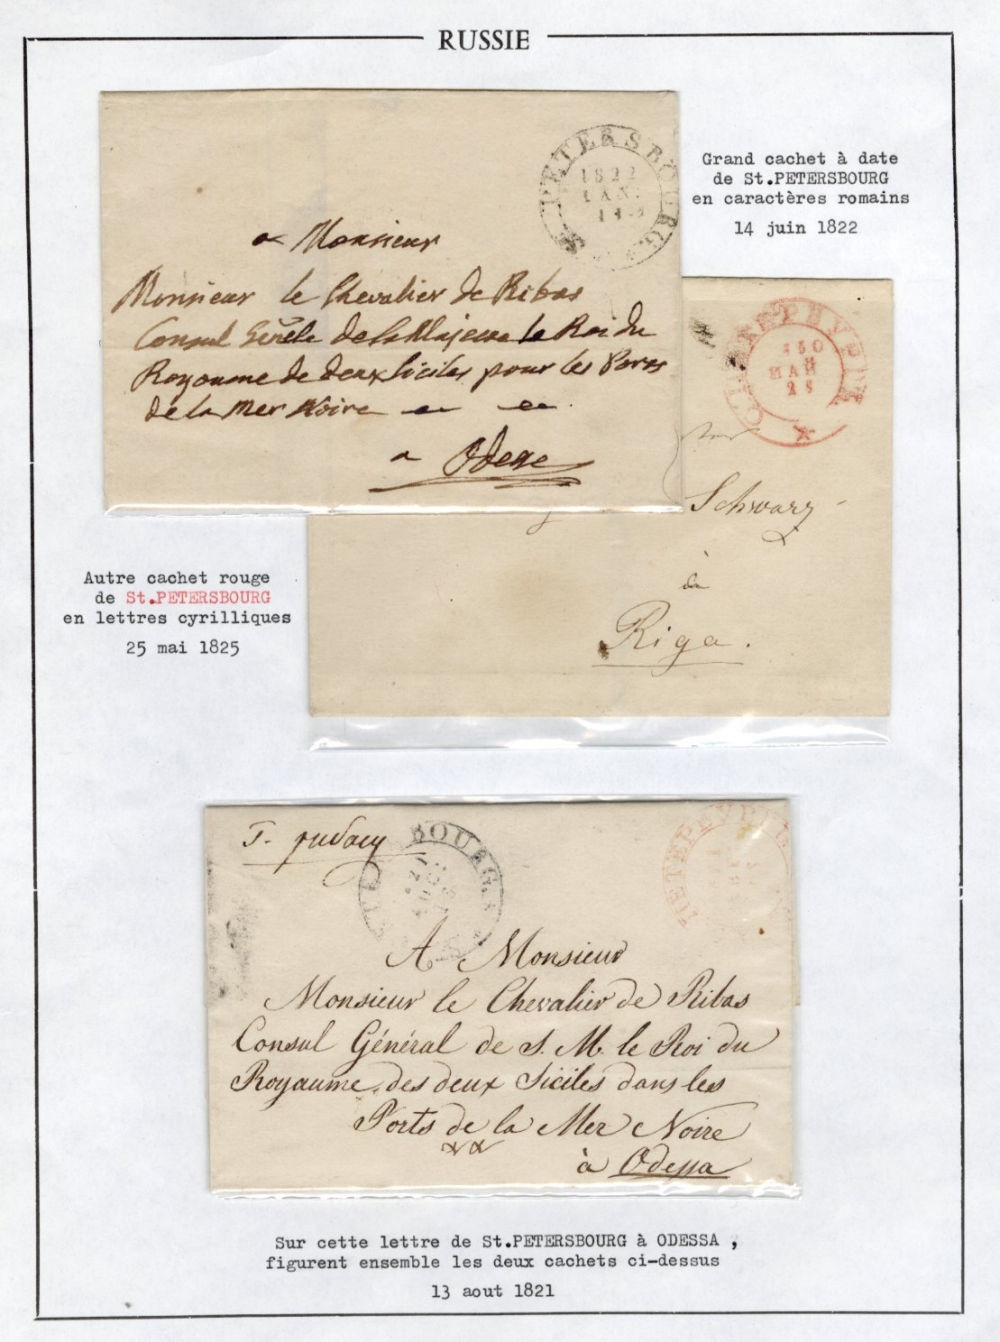 RUSSIE
Grand cachet à date
de St.PETERSBOURG
en caractères romains
14 juin 1822
PETERSBOURG.
1822
IAN.
a Monsieur
Monsieur le Chevalier de Ribas
Consul de Sa Majesté le Roi du
Royaume de deux Siciles pour les Ports
de la Mer Noire
a Odesse
MAЯ
Schwarz
Riga.
Autre cachet rouge
de St.PETERSBOURG
en lettres cyrilliques
25 mai 1825
BOURG.
A Monsieur
Monsieur le Chevalier de Ribas
Consul Général de S. M. le Roi du
Royaume des deux Siciles dans les
Ports de la Mer Noire
à Odessa
Sur cette lettre de St.PETERSBOURG à ODESSA ,
figurent ensemble les deux cachets ci-dessus
13 aout 1821